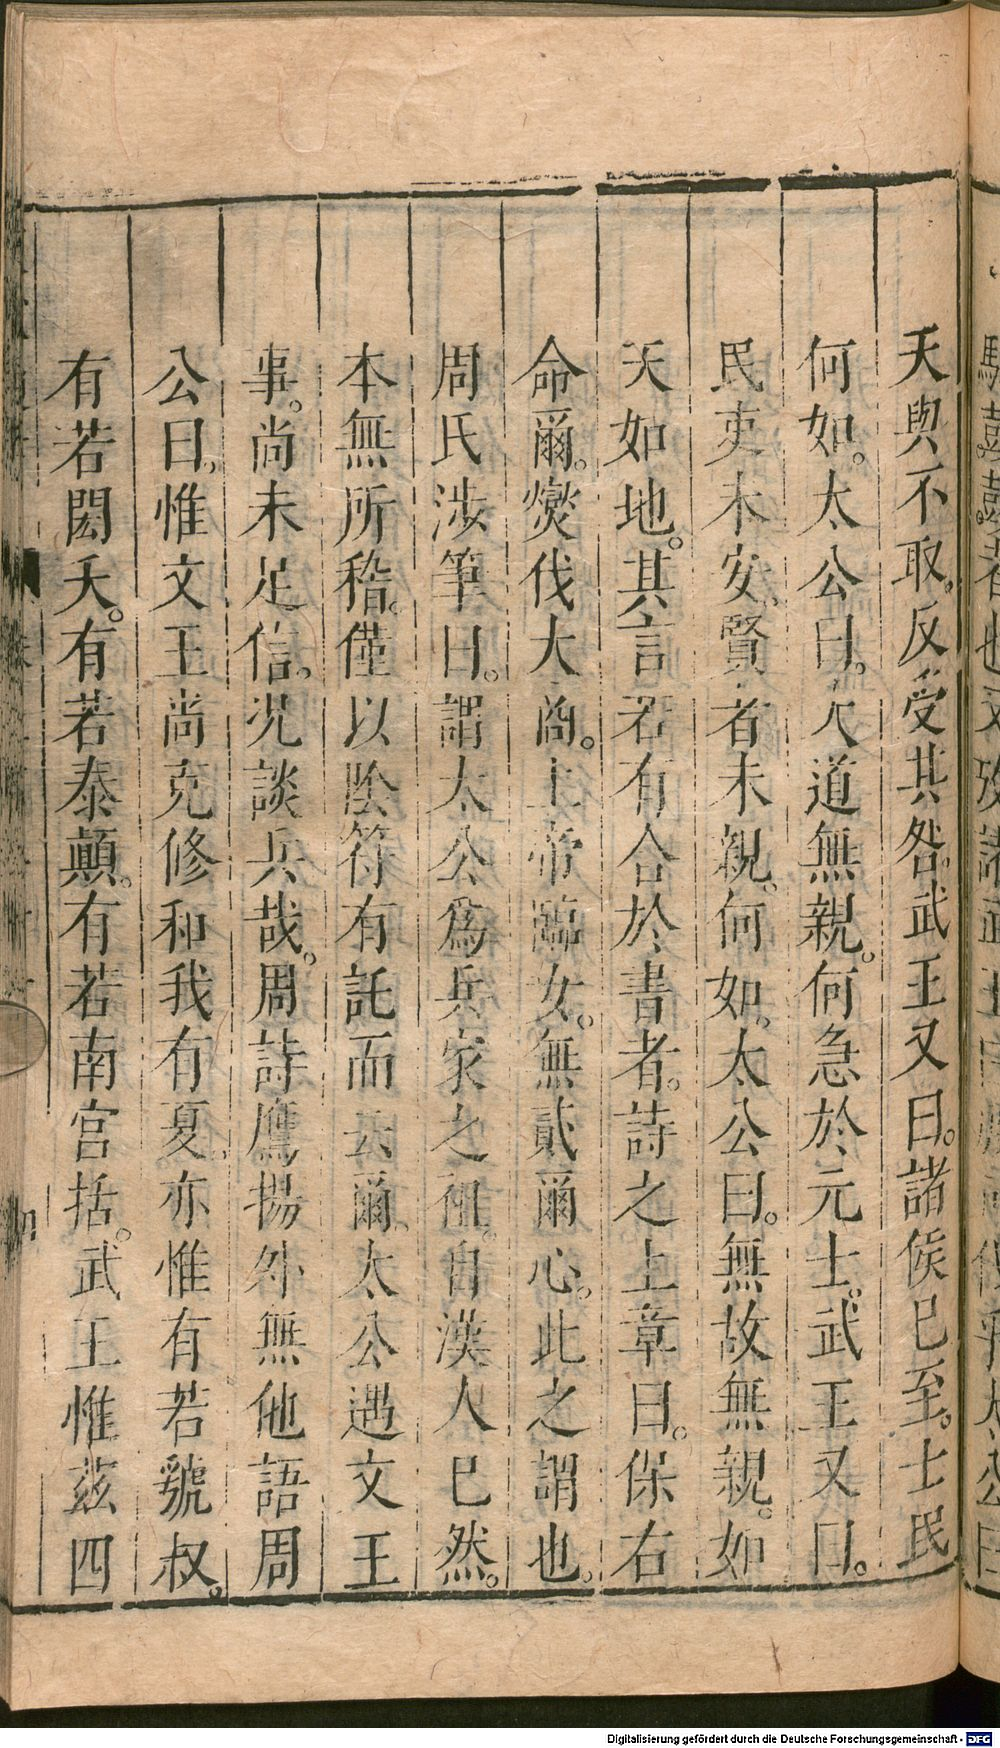 天與不取。反受其咎。武王又曰。諸侯已至。士民
何如。太公曰。大道無親。何急於元士。武王又曰。
民吏未安。賢者未親。何如。太公曰。無故無親。如
天如地。其言若有合於書者。詩之上章曰。保右
命爾。燮伐大商。上帝臨女。無貳爾心。此之謂也。
周氏涉筆曰。謂太公為兵家之祖。自漢人已然。
本無所稽。僅以陰符有託而云爾。太公遇文王
事。尚未足信。況談兵哉。周詩鷹揚外無他語周
公曰。惟文王尚克修和我有夏。亦惟有若虢叔。
有若閎夭。有若泰顛。有若南宮括。武王惟茲四
Digitalisierung gefördert durch die Deutsche Forschungsgemeinschaft - DFG